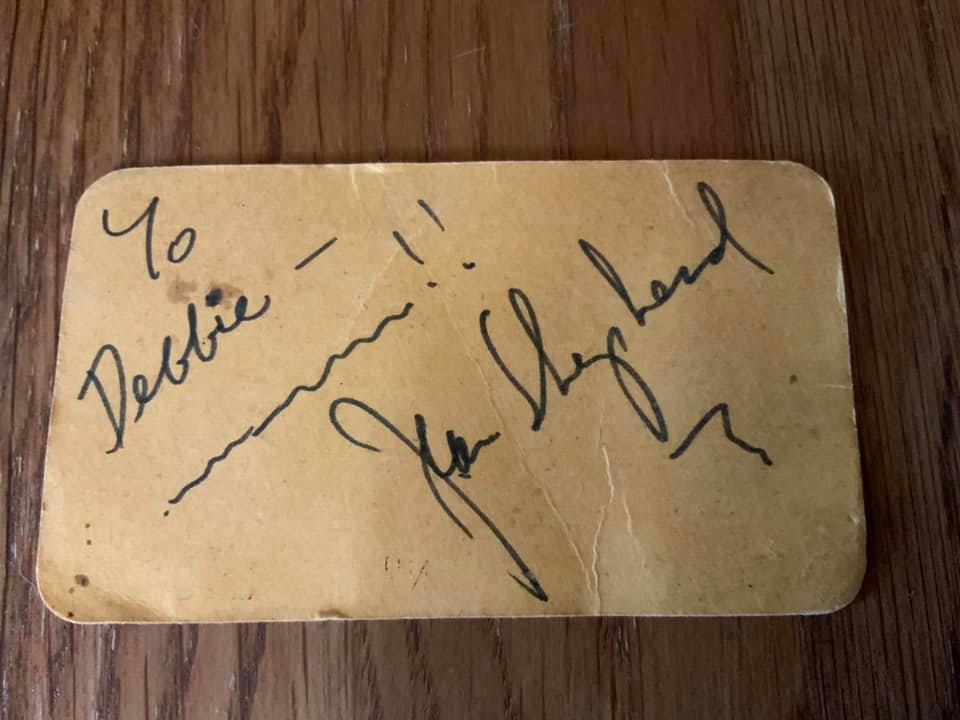 To
Debbie –
!!
Jean Shepherd